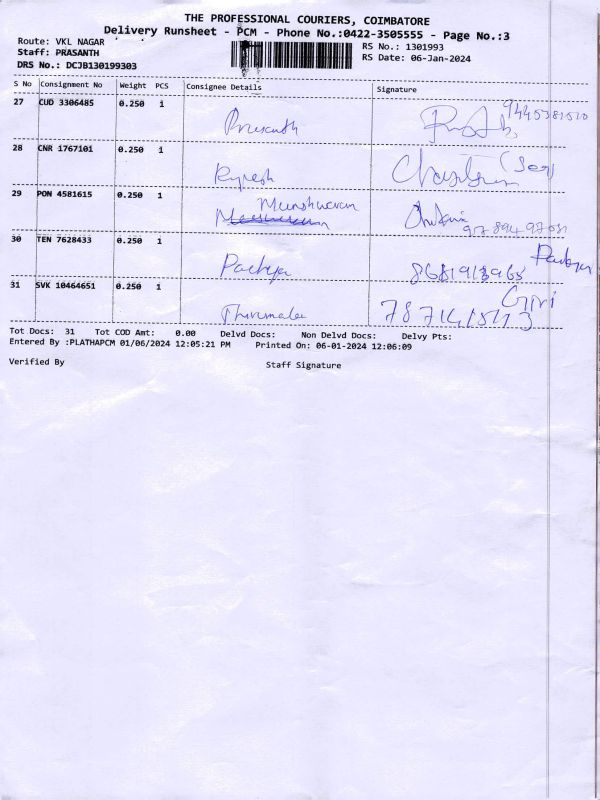 THE PROFESSIONAL COURIERS, COIMBATORE
Delivery Runsheet - PCM - Phone No.:0422-3505555 - Page No.:3
Route: VKL NAGAR
RS No.: 1301993
Staff: PRASANTH
RS Date: 06-Jan-2024
DRS No.: DCJB130199303
S No Consignment No Weight PCS Consignee Details Signature
27 CUD 3306485 0.250 1
Prasanth 9445381510
28 CNR 1767101 0.250 1
Rajesh
29 PON 4581615 0.250 1
Munshwaran
9789497031
30 TEN 7628433 0.250 1
8681913965
31 SVK 10464651 0.250 1
Giri
Thirumalai
Tot Docs: 31 Tot COD Amt: 0.00 Delvd Docs: Non Delvd Docs: Delvy Pts:
Entered By :PLATHAPCM 01/06/2024 12:05:21 PM Printed On: 06-01-2024 12:06:09
Verified By Staff Signature